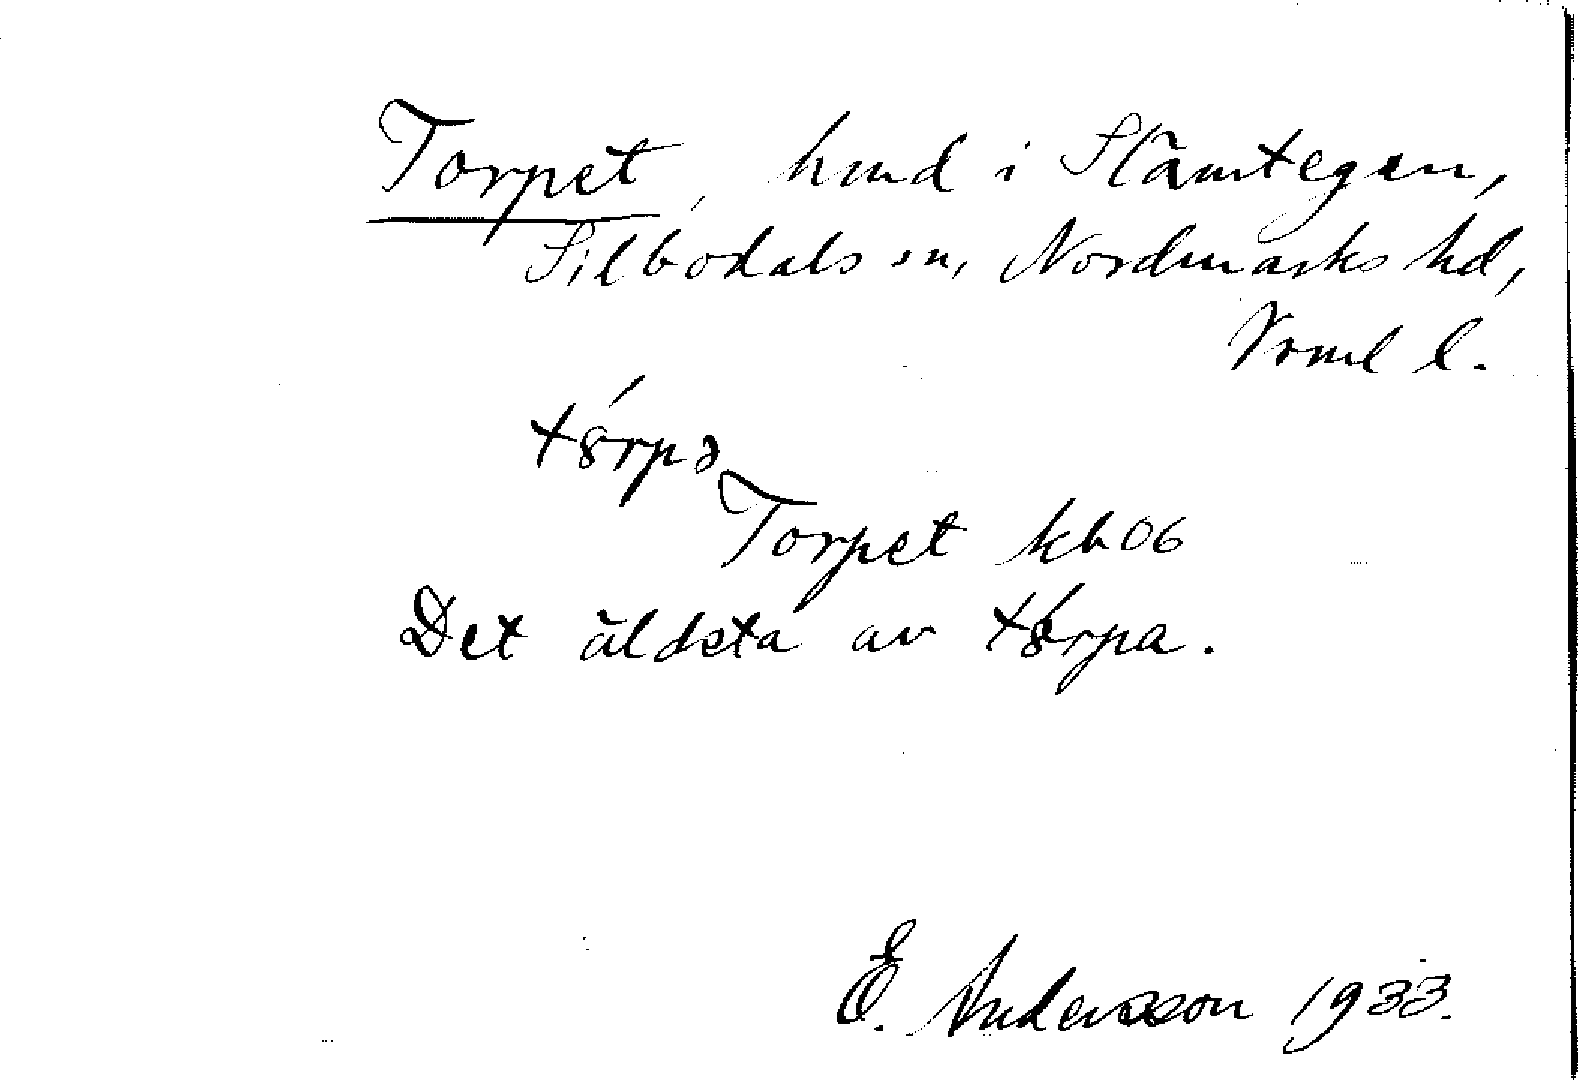 Torpet, hmd i Slämtegen,
Silbodals sn, Nordmarks hd,
Vrml l.
tórpə
Torpet kb 06
Det äldsta av tórpa.
E. Andersson 1933.